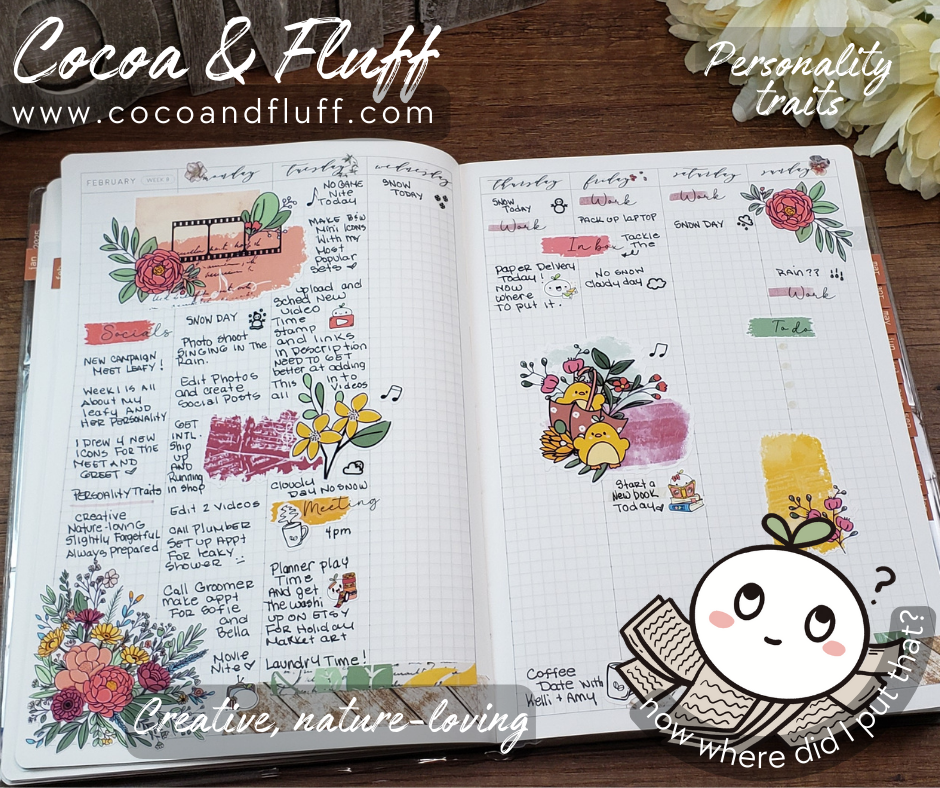 Cocoa & Fluff
www.cocoandfluff.com
Personality
traits
FEBRUARY
WEEK 8
monday
tuesday
wednesday
thursday
friday
saturday
sunday
Socials
NEW CAMPAIGN
MEET LEAFY!
WEEK 1 IS All
About My
leafy AND
HER PERSONALITY
I DREW 4 NEW
ICONS FOR THE
MEET AND
GREET
PERSONALITY Traits
CREATIVE
Nature-loving
Slightly Forgetful
Always Prepared
SNOW DAY
Photo shoot
SINGING IN THE
Rain.
Edit Photos
and create
Social Posts
GET
INTL.
Ship
up
AND
Running
in shop
Edit 2 Videos
CAll PlUMBER
SET UP APPT
FOR leaky
Shower
Call Groomer
make appt
FOR Sofie
and
Bella
Movie
Nite
NO GAME
Nite
Today
MAKE B&W
Mini Icons
With my
Most
Popular
Sets
upload and
Sched New
Video
Time
Stamp
and links
In Description
NEED TO GET
better at adding
This into
all Videos
Cloudy
Day No SNOW
Meeting
4pm
Planner play
Time
And get
The washi
UP ON ETSY
FOR Holiday
Market art
Laundry Time!
SNOW
TODAY
SNOW
Today
Work
Paper Delivery
Today!
NOW
where
TO put it.
Work
PACK UP lAPTOP
Inbox
Tackle
The
No SNOW
Cloudy day
Start a
New book
Today
Coffee
Date with
Kelli + Amy
Work
SNOW DAY
Rain??
Work
To do
Jan
may
Creative, nature-loving
?
now where did I put that?